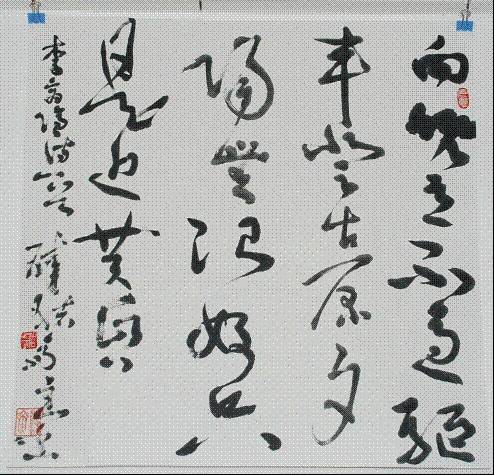 向晚意不適驅
車登古原夕
陽無限好只
是近黃昏
李商隱詩